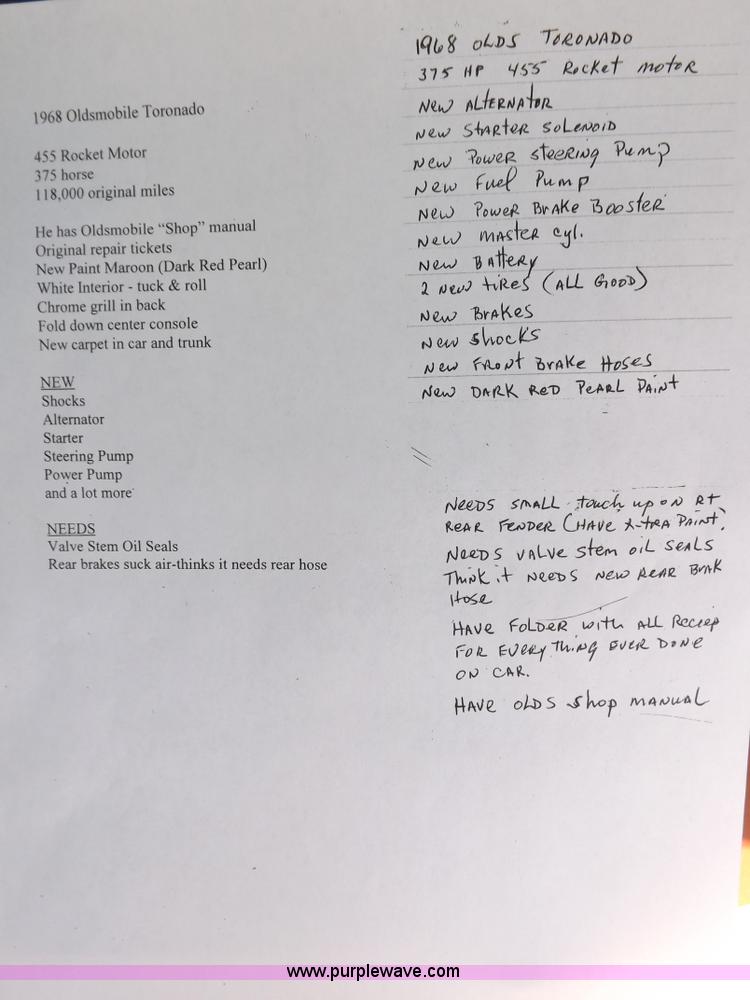 1968 Oldsmobile Toronado
455 Rocket Motor
375 horse
118,000 original miles
He has Oldsmobile “Shop” manual
Original repair tickets
New Paint Maroon (Dark Red Pearl)
White Interior - tuck & roll
Chrome grill in back
Fold down center console
New carpet in car and trunk
NEW
Shocks
Alternator
Starter
Steering Pump
Power Pump
and a lot more
NEEDS
Valve Stem Oil Seals
Rear brakes suck air-thinks it needs rear hose
1968 OLDS TORONADO
375 HP 455 Rocket motor
New ALTERNATOR
New STARTER SOLENOID
New Power steering Pump
New Fuel Pump
New Power Brake Booster
New master cyl.
New Battery
2 New tires (ALL GOOD)
New Brakes
New shocks
New Front Brake Hoses
New DARK RED PEARL PAINT
Needs small touch up on RT
rear fender (have x-tra paint)
Needs valve stem oil seals
Think it needs new rear Brak
Hose
Have folder with all Receep
for everything ever done
on car.
Have OLDS shop manual
www.purplewave.com